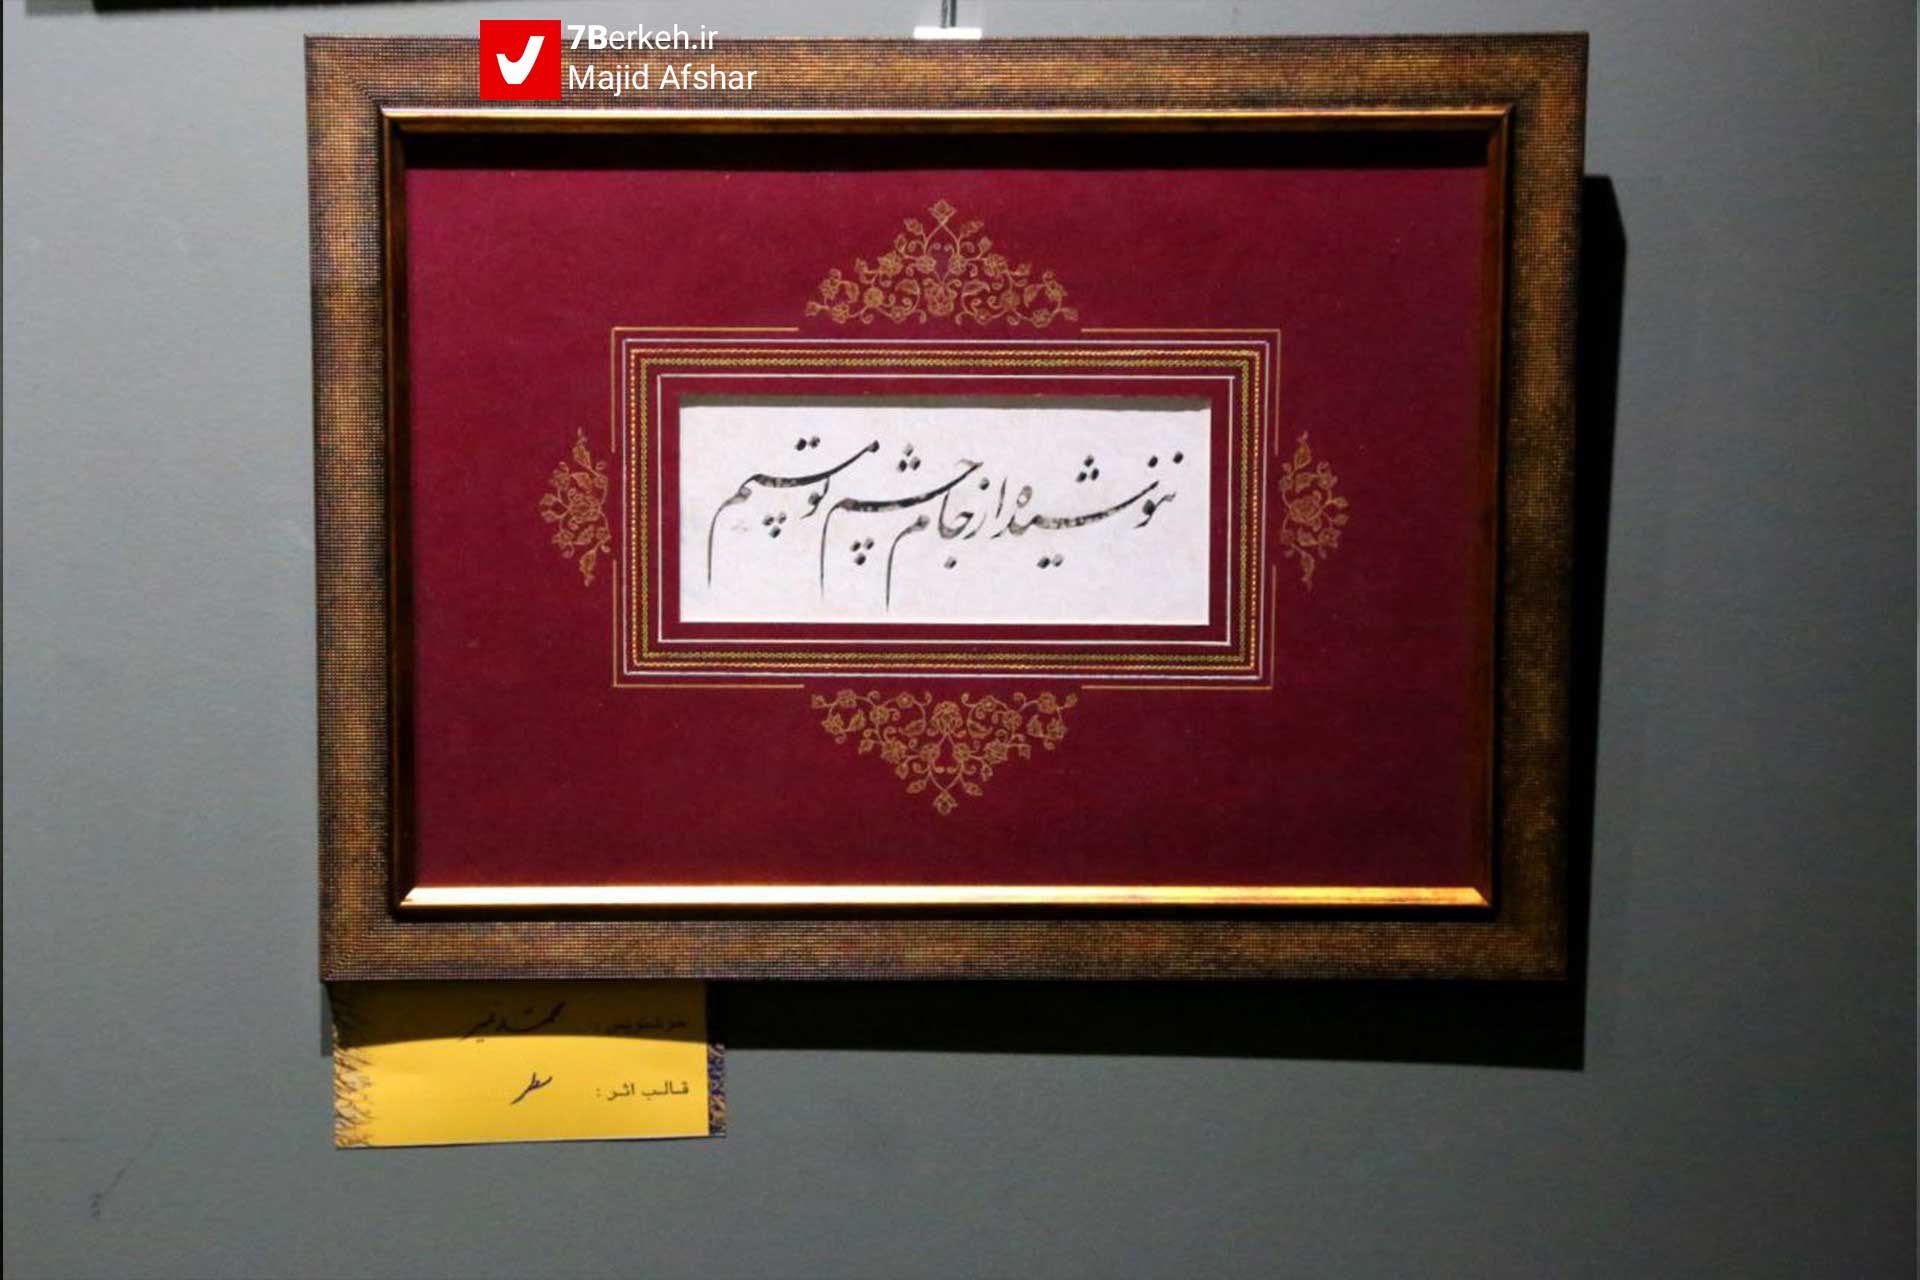 7Berkeh.ir
Majid Afshar
ننوشیده از جام چشم تو مستیم
خوشنویس :
قالب اثر : سطر